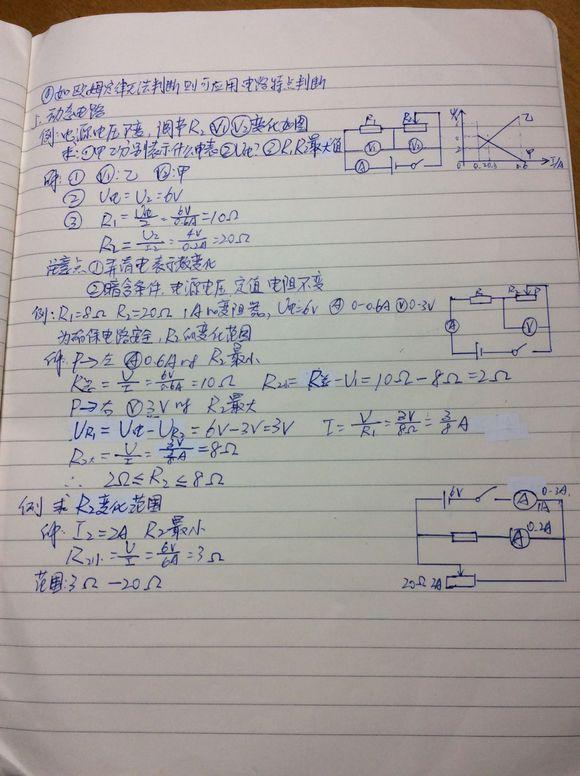 ④如欧姆定律无法判断则可应用电路特点判断
5. 动态电路
例:电源电压不变,调节R₂ V₁ V₂变化如图
求:①甲乙分别表示什么电表②U电?③R₁R₂最大值
解:① V₁:乙 V₂:甲
② U电=U₂=6V
③ R₁=U电/I=6V/0.6A=10Ω
R₂=U₂/I₂=4V/0.2A=20Ω
注意点①弄清电表示数变化
②暗含条件,电源电压 定值 电阻不变
例:R₁=8Ω R₂=20Ω 1A的变阻器,U电=6V Ⓐ 0-0.6A Ⓥ0-3V
为确保电路安全,R₂的变化范围
解:P→左 Ⓐ0.6A时 R₂最小
R总=U/I=6V/0.6A=10Ω R₂小=R总-U₁=10Ω-8Ω=2Ω
P→右 Ⓥ3V时 R₂最大
UR₁=U电-UR₂=6V-3V=3V I=V/R₁=3V/8Ω=3/8A
R₂大=U/I=3V/(3/8)A=8Ω
∴ 2Ω≤R₂≤8Ω
例 求R₂变化范围
解:I₂=2A R₂最小
R₂小=U/I=6V/6A=3Ω
范围:3Ω-20Ω
R₁
R₂
V₁
V₂
A
乙
甲
I/A
R₁
R₂
P
A
V
6V
A
0-3A
A
20Ω 2A